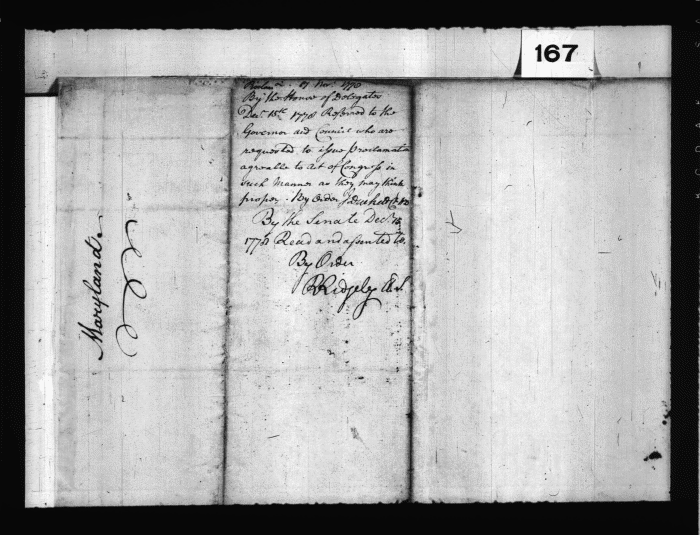 167
Maryland
By the House of Delegates
Decr. 15th. 1778 Referred to the
Governor and Council who are
requested to issue Proclamatn
agreable to Act of Congress in
such Manner as they may think
proper. By Order J Duckett Cl HD
By the Senate Decr. 15
1778 Read and assented to.
By Order
R Ridgely Cl S